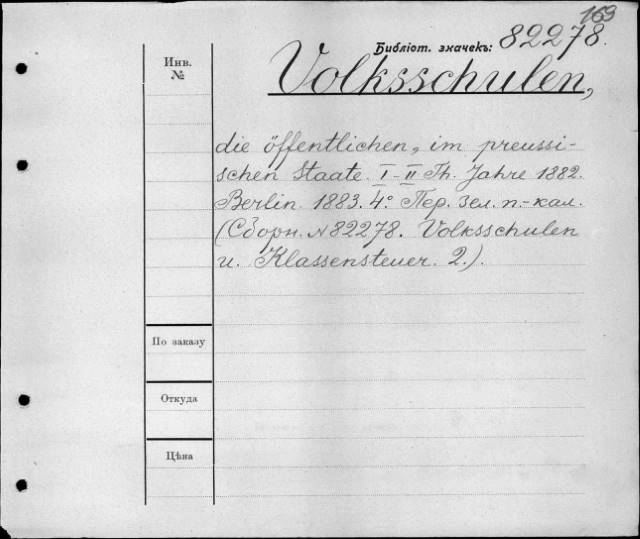 169
Библіот. значекъ: 82278.
Инв.
№
Volksschulen,
die öffentlichen, im preussi-
schen Staate. I-II Th. Jahre 1882.
Berlin. 1883. 4º. Пер. зел. п.-кал.
(Сборн. № 82278. Volksschulen
u. Klassensteuer. 2.).
По заказу
Откуда
Цѣна